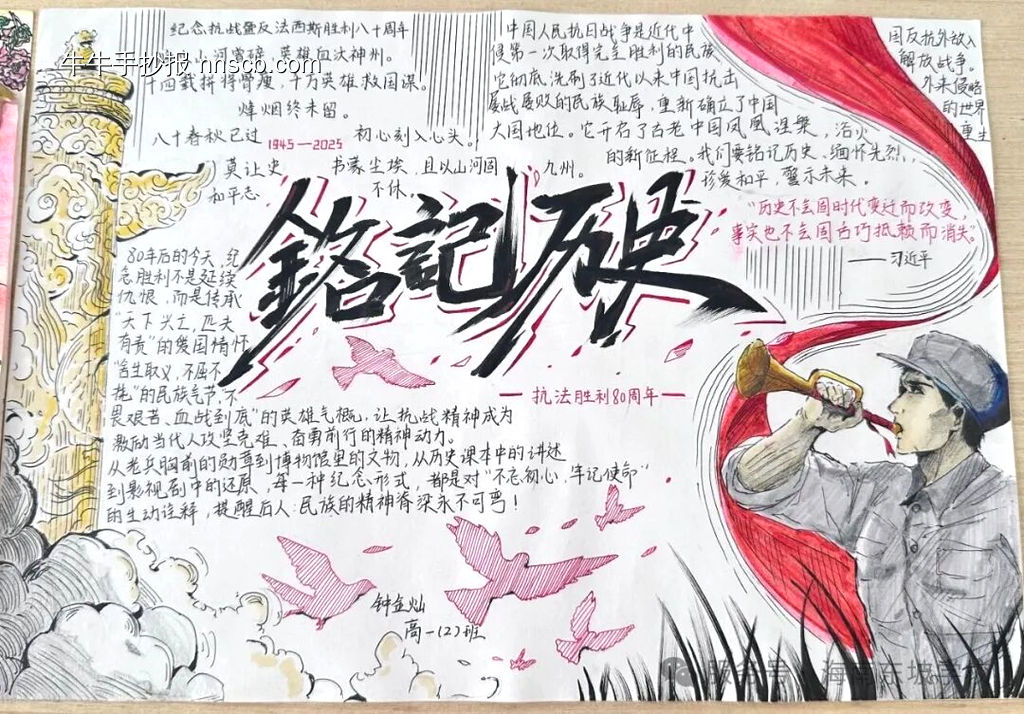 纪念抗战暨反法西斯胜利八十周年
牛牛手抄报 nnscb.com
山河零碎 英雄血沃神州。
十四载拼得骨瘦,千万英雄救国谋。
烽烟终未留。
八十春秋已过 1945—2025 初心刻入心头。
莫让史书蒙尘埃,且以山河固九州。
和平志不休。
中国人民抗日战争是近代中
侵第一次取得完全胜利的民族
它彻底洗刷了近代以来中国抗击
屡战屡败的民族耻辱,重新确立了中国
大国地位。它开启了古老中国凤凰涅槃、浴火
的新征程。我们要铭记历史、缅怀先烈、
珍爱和平,警示未来。
国反抗外敌入
解放战争。
外来侵略
的世界
重生
“历史不会因时代变迁而改变,
事实也不会因舌巧抵赖而消失。”
——习近平
銘記历史
— 抗法胜利80周年 —
80年后的今天,纪
念胜利不是延续
仇恨,而是传承
“天下兴亡,匹夫
有责”的爱国情怀
“舍生取义,不屈不
挠”的民族气节,不
畏艰苦、血战到底”的英雄气概,让抗战精神成为
激励当代人攻坚克难、奋勇前行的精神动力。
从老兵胸前的勋章到博物馆里的文物,从历史课本中的讲述
到影视剧中的还原,每一种纪念形式,都是对“不忘初心、牢记使命”
的生动诠释,提醒后人:民族的精神脊梁永不可弯!
高一(2)班
海南东坡学